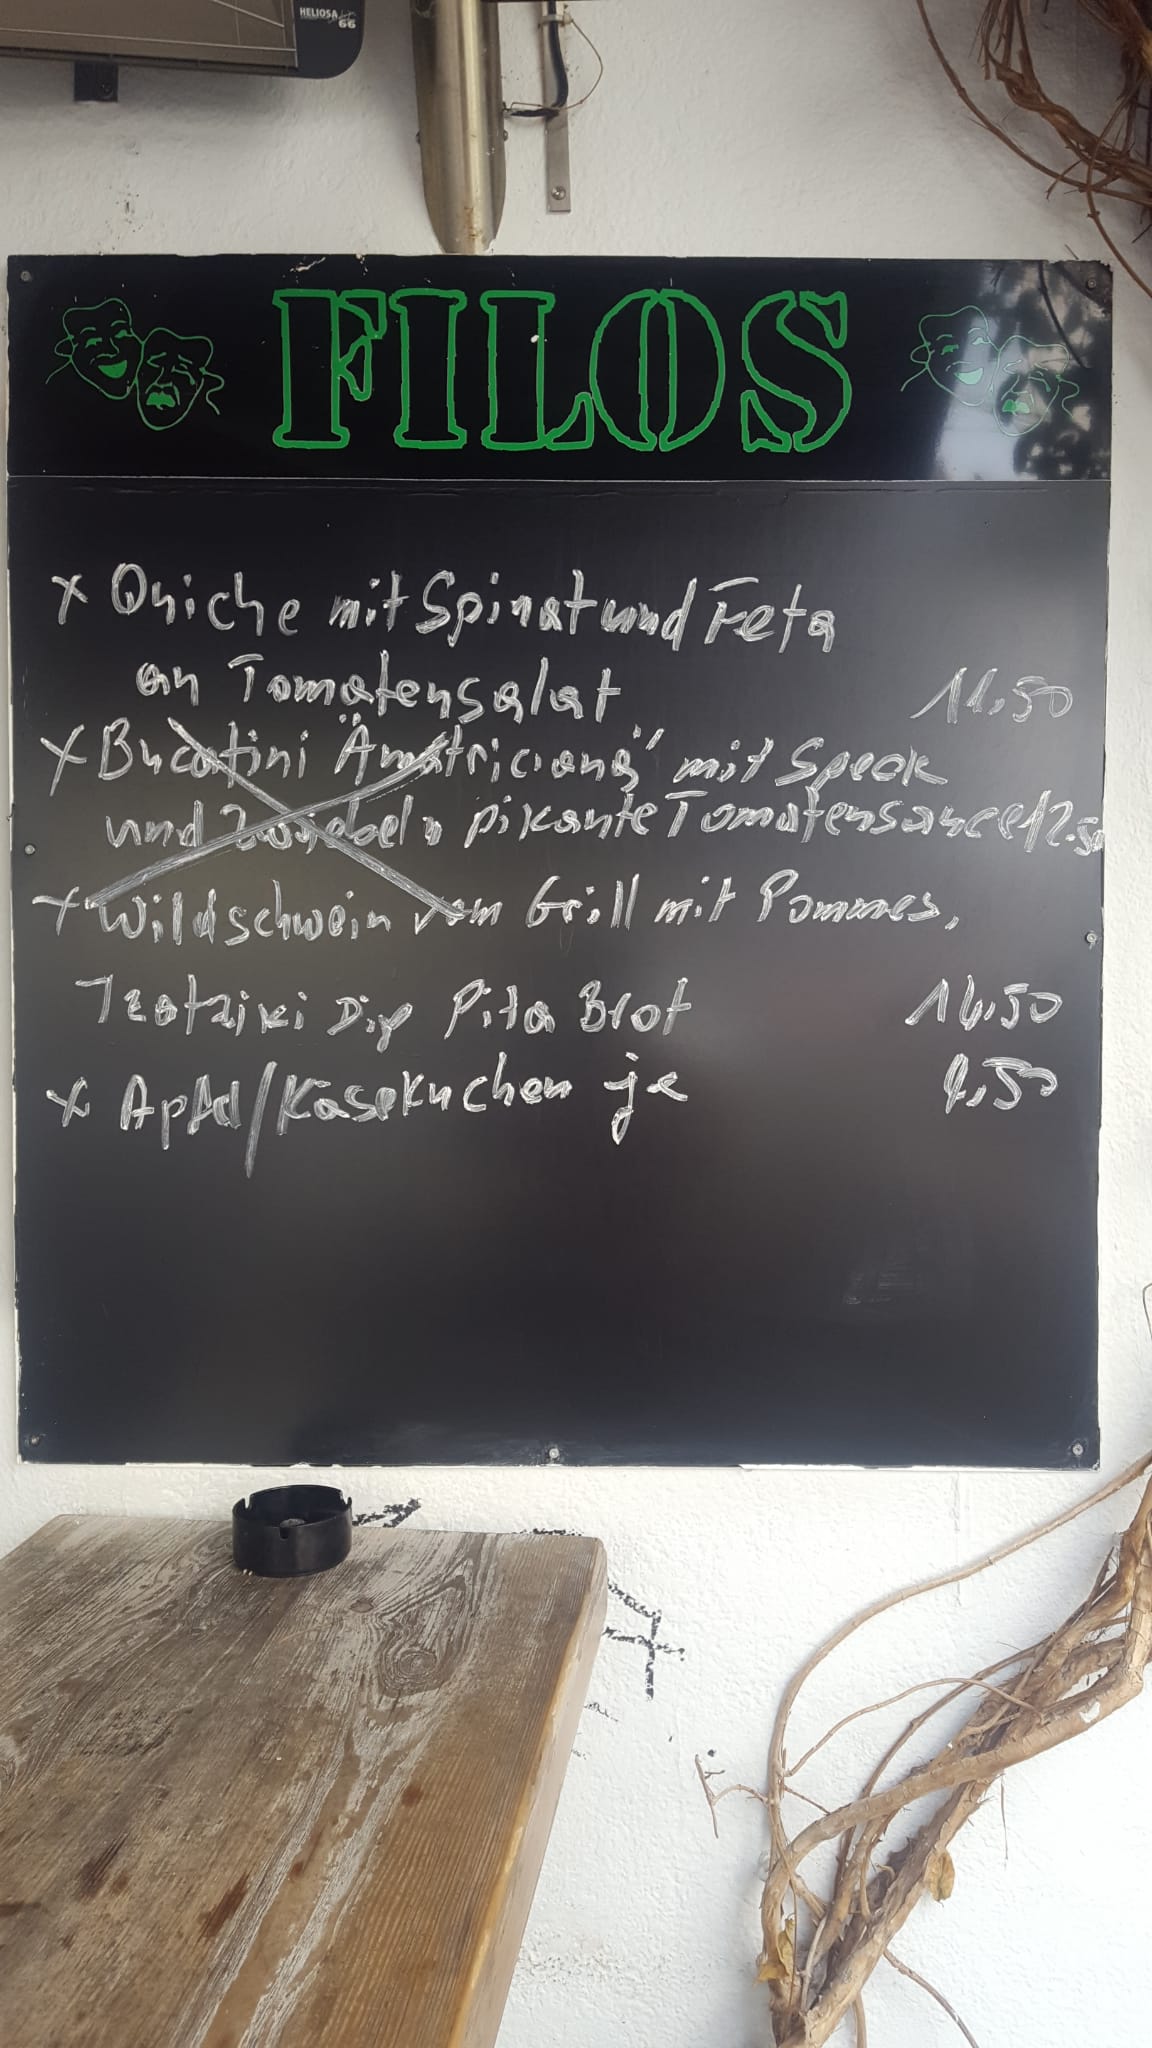 HELIOSA 66
FILOS
x Quiche mit Spinat und Feta
an Tomatensalat 11,50
x Bucatini "Amatriciana" mit Speck
und Zwiebeln pikante Tomatensauce 12.50
x Wildschwein vom Grill mit Pommes,
Tzatziki Dip Pita Brot 14,50
x Apfel/Käsekuchen je 4,50